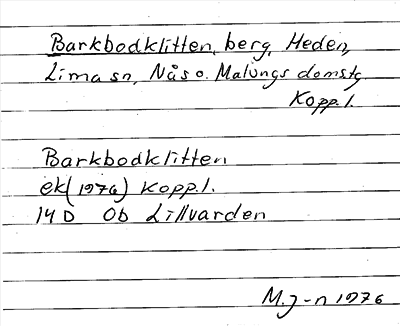 Barkbodklitten, berg, Heden,
Lima sn, Nås o. Malungs domstg
Kopp.l.
Barkbodklitten
ek(1976) Kopp.l.
14D 0b Lillvarden
M.J-n 1976